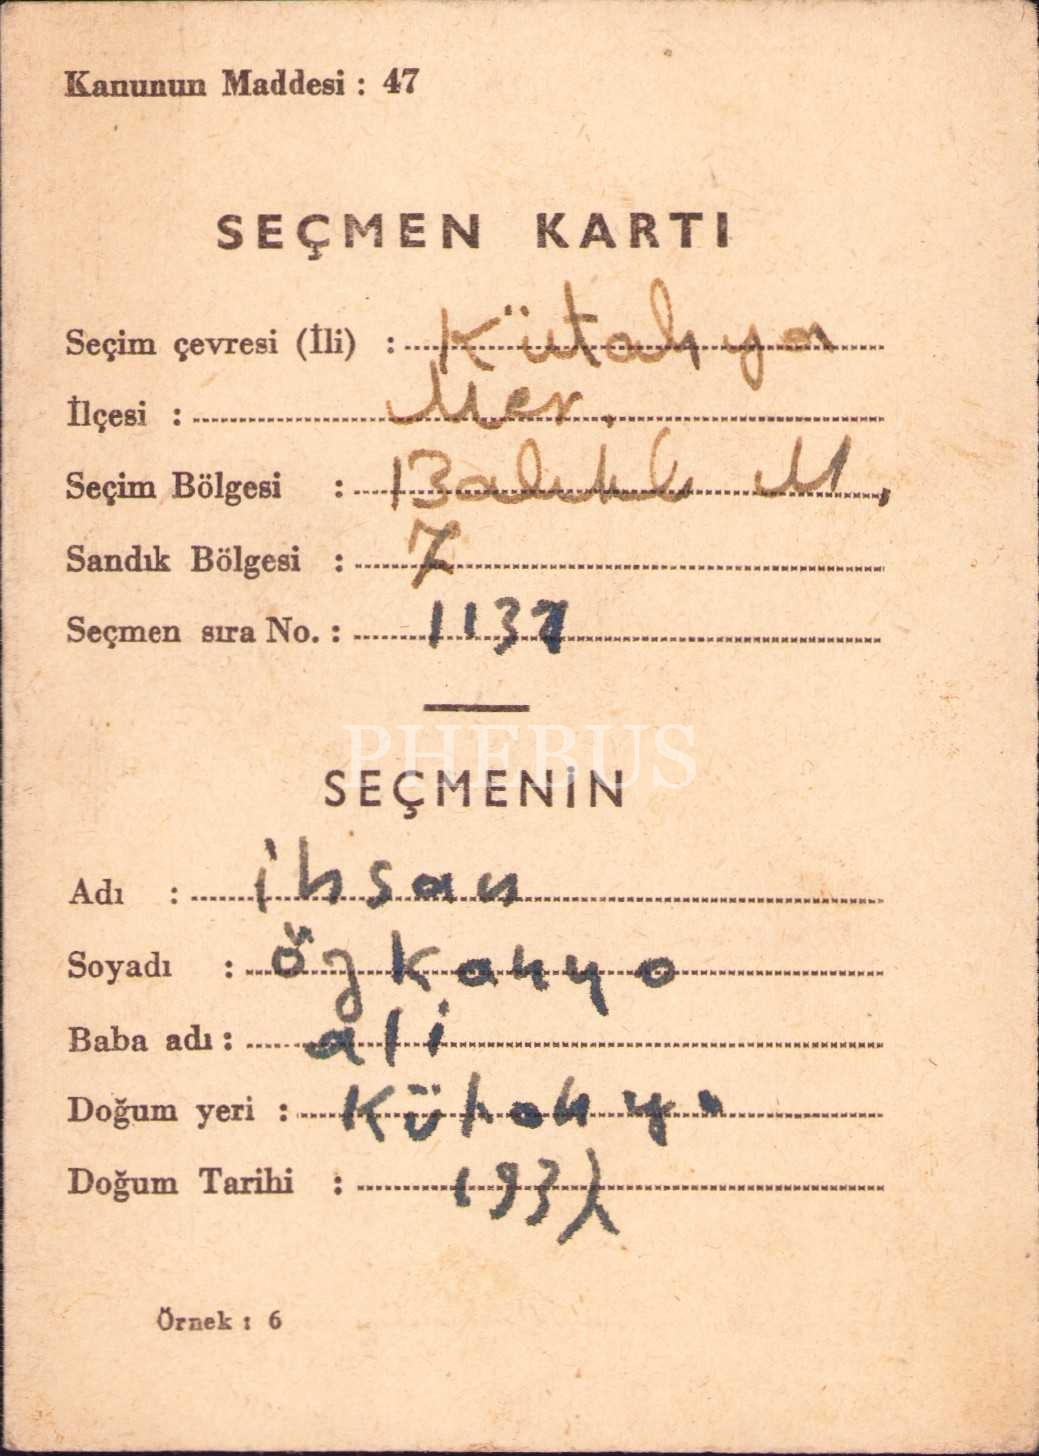 Kanunun Maddesi : 47
SEÇMEN KARTI
Seçim çevresi (İli) : Kütahya
İlçesi : Mer.
Seçim Bölgesi : Balıklı M.
Sandık Bölgesi : 7
Seçmen sıra No. : 1137
PHEBUS
SEÇMENİN
Adı : ihsan
Soyadı :
Baba adı : ali
Doğum yeri : Kütahya
Doğum Tarihi :
Örnek : 6